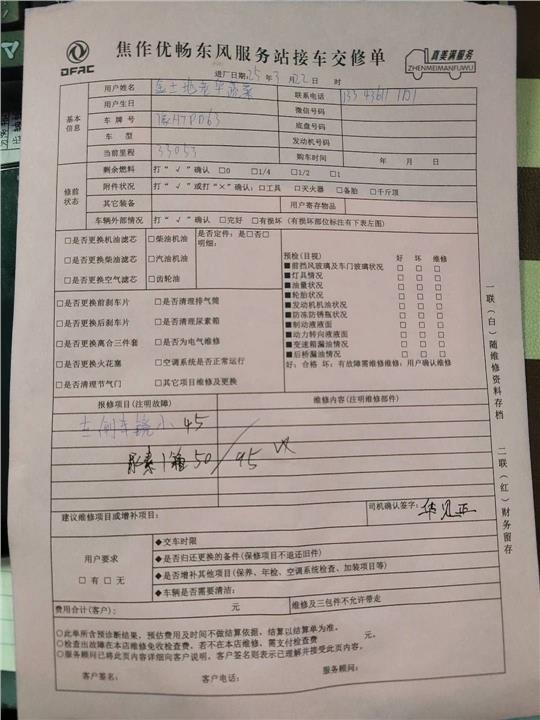 DFAC
焦作优畅东风服务站接车交修单
真美满服务
ZHENMEIMANFUWU
进厂日期:25年3月22日 时
基本信息
用户姓名
联系电话
用户生日
微信号码
车牌号
底盘号码
车 型
发动机号码
当前里程 33053
购车时间 年 月 日
修前状态
剩余燃料 打“√”确认 □0 □1/4 □1/2 □1
附件状况 打“√”或打“×”确认:□工具 □灭火器 □备胎 □千斤顶
其它装备
用户寄存物品
车辆外部情况 打“√”确认 □完好 □有损坏(有损坏部位标注有下表左图)
□是否更换机油滤芯 □柴油机油 是否定件:是□否□
明细:
□是否更换柴油滤芯 □汽油机油
□是否更换空气滤芯 □齿轮油
预检(目视) 好 坏 维修
■前挡风玻璃及车门玻璃状况 □ □ □
■灯具情况 □ □ □
■油量状况 □ □ □
■轮胎状况 □ □ □
■发动机机油状况 □ □ □
■防冻防锈瓶状况 □ □ □
■制动液液面 □ □ □
■动力转向液液面 □ □ □
■变速箱漏油情况 □ □ □
■后桥漏油情况 □ □ □
好:合格 坏:有故障需维修维修:用户确认维修
□是否更换前刹车片 □是否清理排气筒
□是否更换后刹车片 □是否清理尿素箱
□是否更换离合三件套 □是否为电气维修
□是否更换火花塞 □空调系统是否正常运行
□是否清理节气门 □其它项目维修及更换
报修项目(注明故障)
维修内容(注明维修部件)
倒车镜小 45
尿素1箱50/95
建议维修项目或增补项目:
司机确认签字:
用户要求
□有 □无
◆交车时限
◆是否归还更换的备件(保修项目不退还旧件)
◆是否增补其他项目(保养、年检、空调系统检查、加装项目等)
◆车辆是否需要清洁:
费用合计(客户): 元
维修及三包件不允许带走
○此单所含预诊断结果,预估费用及时间不做结算依据,结算以结算单为准。
○检查出故障在本店维修免收检查费,若不在本店维修、需支付检查费 元。
○服务顾问已将此页内容详细向客户说明,客户签名则表示已理解并接受此页内容。
客户签名: 客户电话: 服务顾问:
一联(白)随维修资料存档
二联(红)财务留存